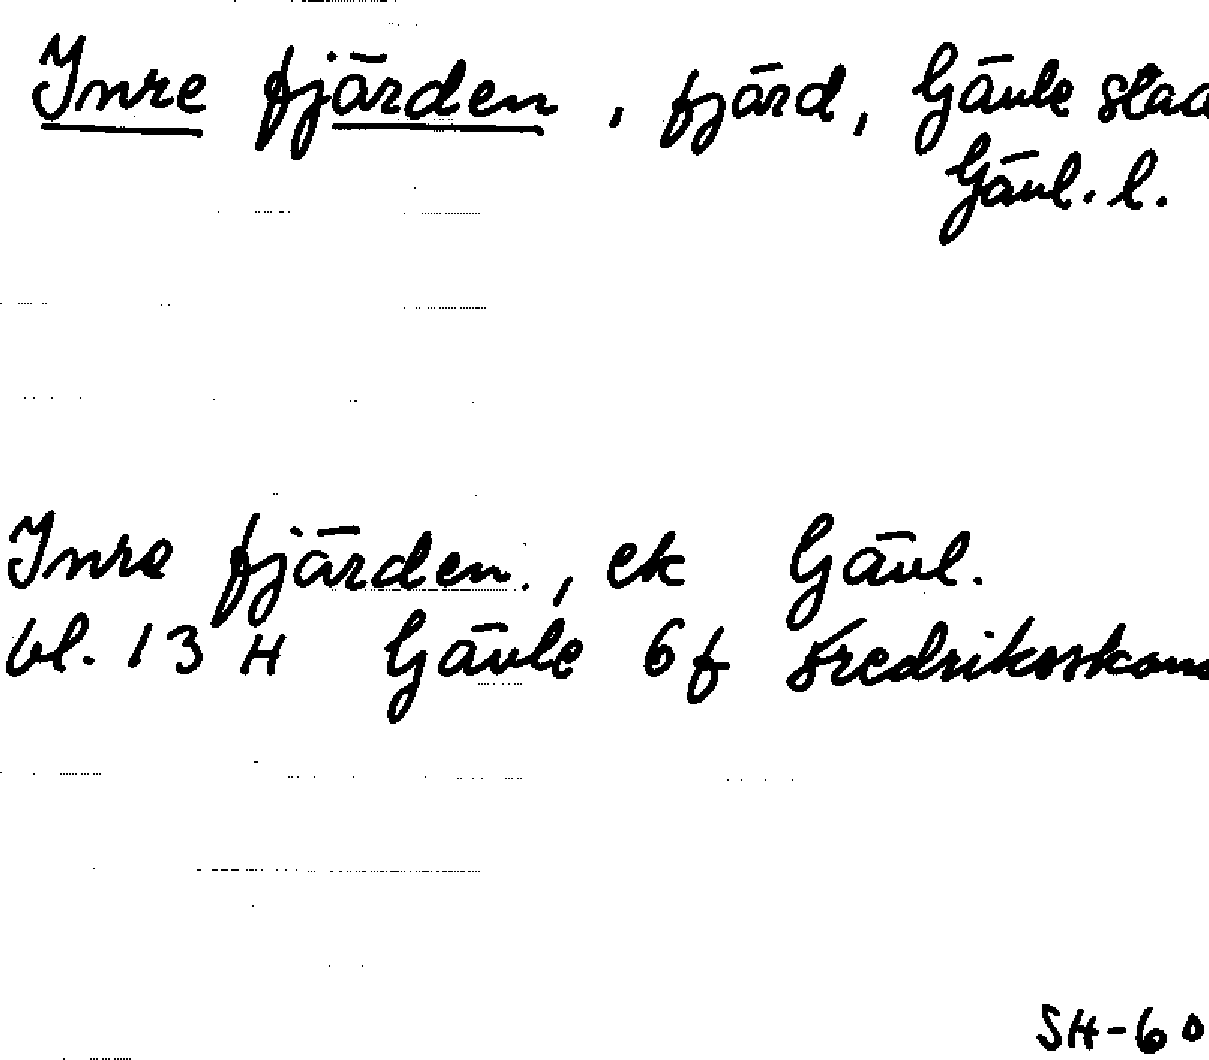 Inre fjärden, fjärd, Gävle stad
Gävl. l.
Inre fjärden., ek Gävl.
bl. 13 H Gävle 6f Fredriksskans
SH-60